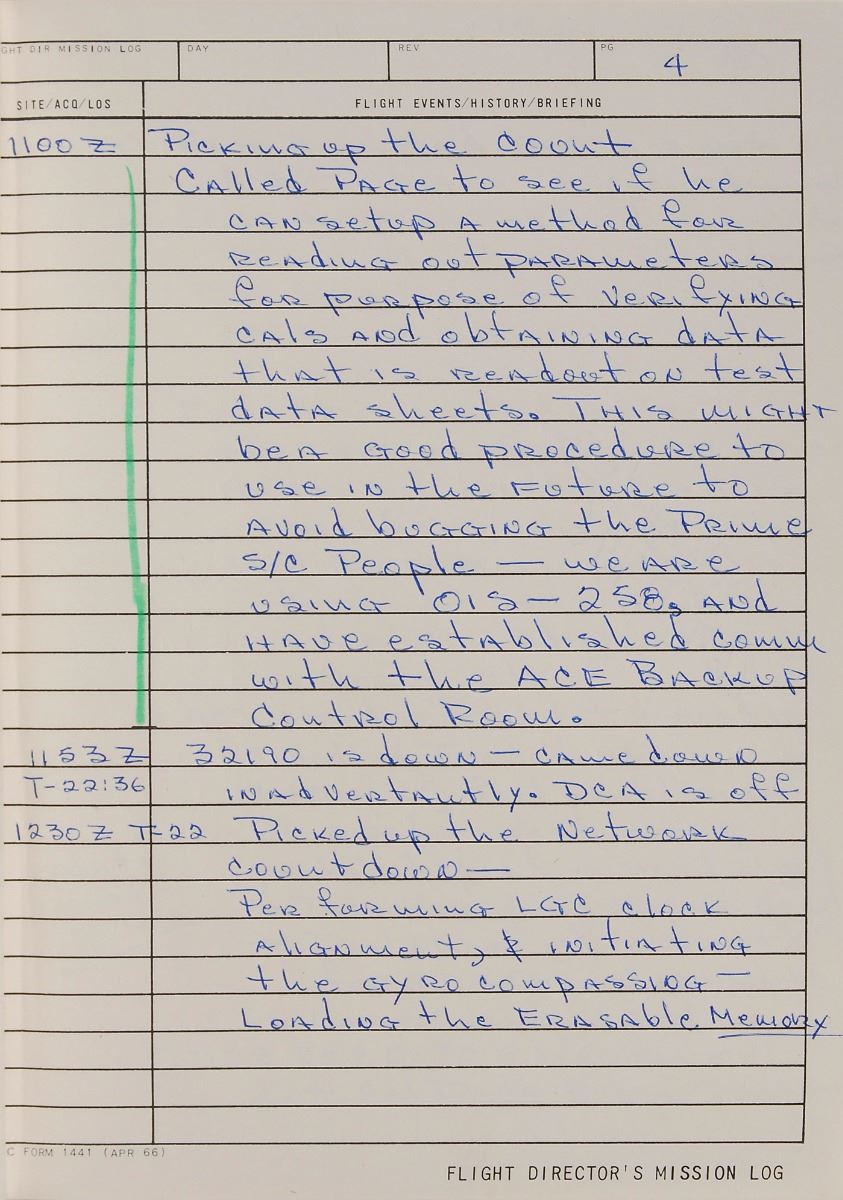 GHT DIR MISSION LOG DAY REV PG 4
SITE/ACQ/LOS FLIGHT EVENTS/HISTORY/BRIEFING
1100 Z Picking up the count
Called Page to see if he
can setup a method for
reading out parameters
for purpose of verifying
cals and obtaining data
that is readout on test
data sheets. This might
be a good procedure to
use in the future to
avoid bugging the Prime
S/C People — we are
using OIS-258, and
have established comm
with the ACE Backup
Control Room.
1153 Z 32190 is down — came down
T-22:36 inadvertantly. DCA is off
1230 Z T-22 Picked up the Network
countdown —
Performing LGC clock
alignment, & initiating
the gyro compassing —
Loading the Erasable Memory
C FORM 1441 (APR 66)
FLIGHT DIRECTOR'S MISSION LOG